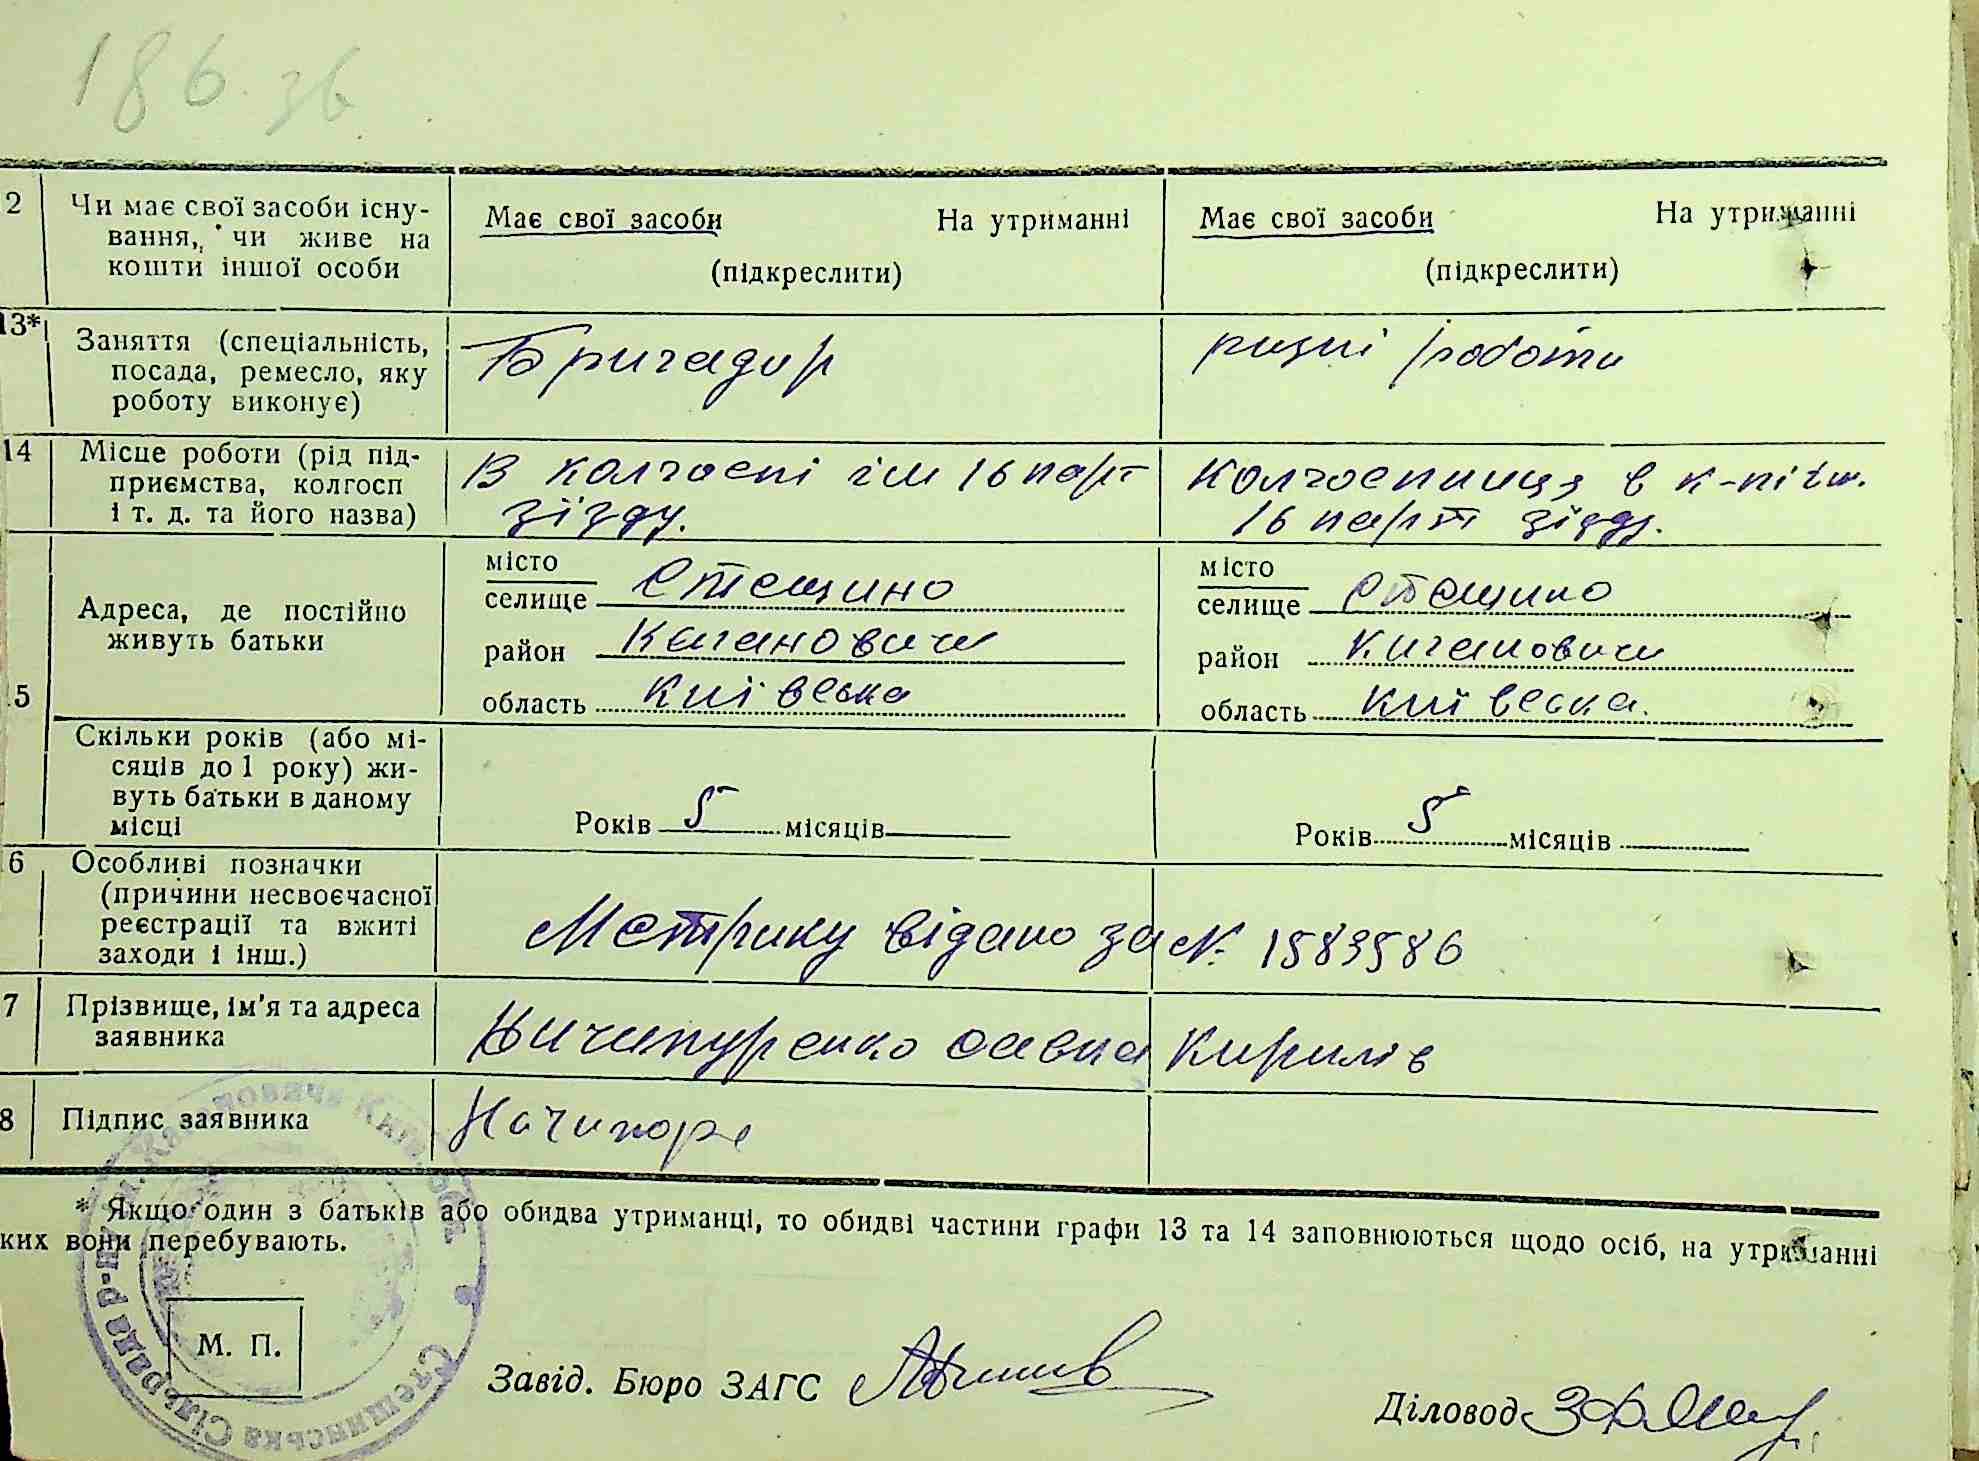 186 зв
2 Чи має свої засоби існу- Має свої засоби На утриманні Має свої засоби На утриманні
вання, чи живе на
кошти іншої особи (підкреслити) (підкреслити)
13* Заняття (спеціальність, Бригадир ризні роботи
посада, ремесло, яку
роботу виконує)
14 Місце роботи (рід під- В колгоспі ім 16 парт Колгоспниця в к-пі ім.
приємства, колгосп зїзду. 16 парт зїзду.
і т. д. та його назва)
місто місто
Адреса, де постійно селище Стещино селище Стещино
живуть батьки район Каганович район Каганович
5 область Київська область Київська.
Скільки років (або мі-
сяців до 1 року) жи-
вуть батьки в даному
місці Років 5 місяців Років 5 місяців
6 Особливі позначки
(причини несвоєчасної
реєстрації та вжиті Метрику відано за № 1583586
заходи і інш.)
7 Прізвище, ім'я та адреса Ничипуренко Савка Кирилів
заявника
8 Підпис заявника Ничипоре
* Якщо один з батьків або обидва утриманці, то обидві частини графи 13 та 14 заповнюються щодо осіб, на утриманні
ких вони перебувають.
М. П.
Стещинська Сільрада р-ну Кагановича Київ. обл.
Завід. Бюро ЗАГС
Діловод